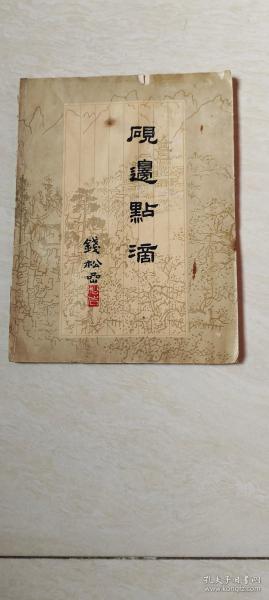 硯邊點滴
錢松嵒
孔夫子旧书网